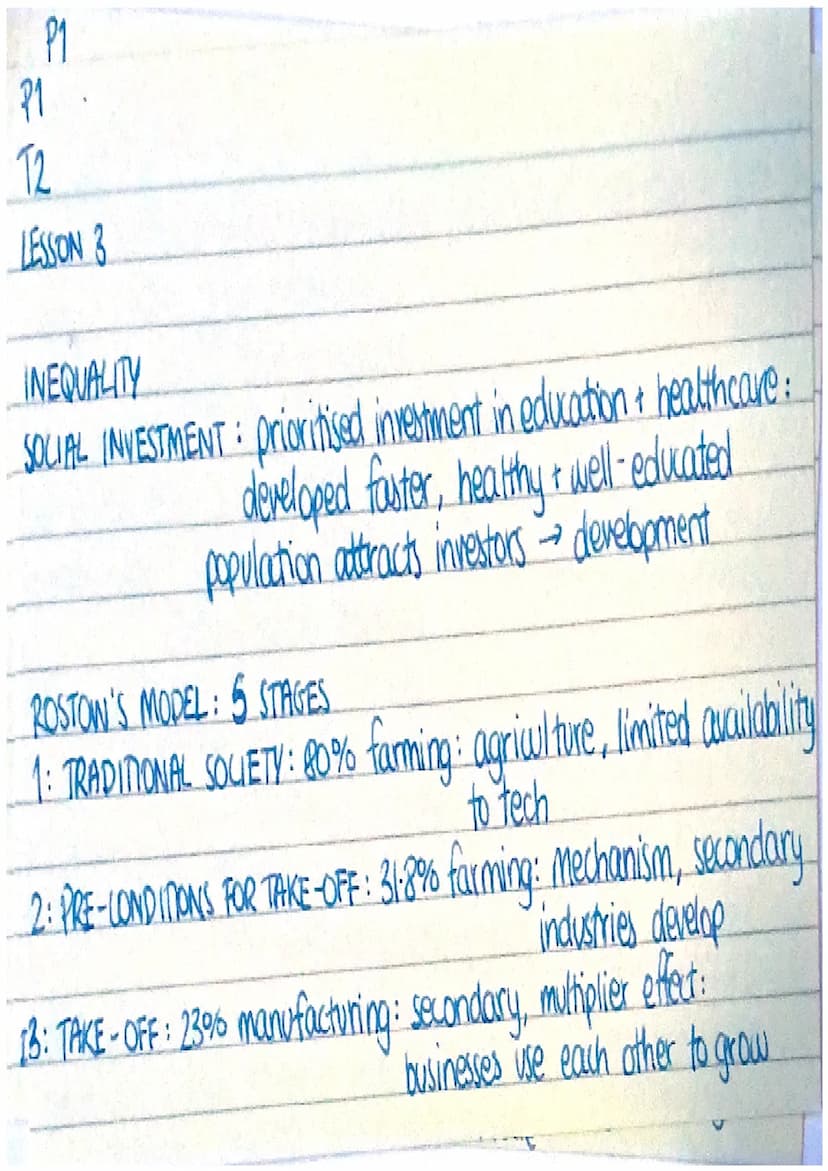 P1
P1
T2
LESSON 3
INEQUALITY
SOCIAL INVESTMENT : prioritised investment in education + healthcare :
developed faster, healthy + well-educated
population attracts investors → development
ROSTOW'S MODEL : 5 STAGES
1: TRADITIONAL SOCIETY : 80% farming : agriculture, limited availability
to tech
2: PRE-CONDITIONS FOR TAKE-OFF : 31.8% farming: mechanism, secondary
industries develop
3: TAKE-OFF : 23% manufacturing : secondary, multiplier effect:
businesses use each other to grow